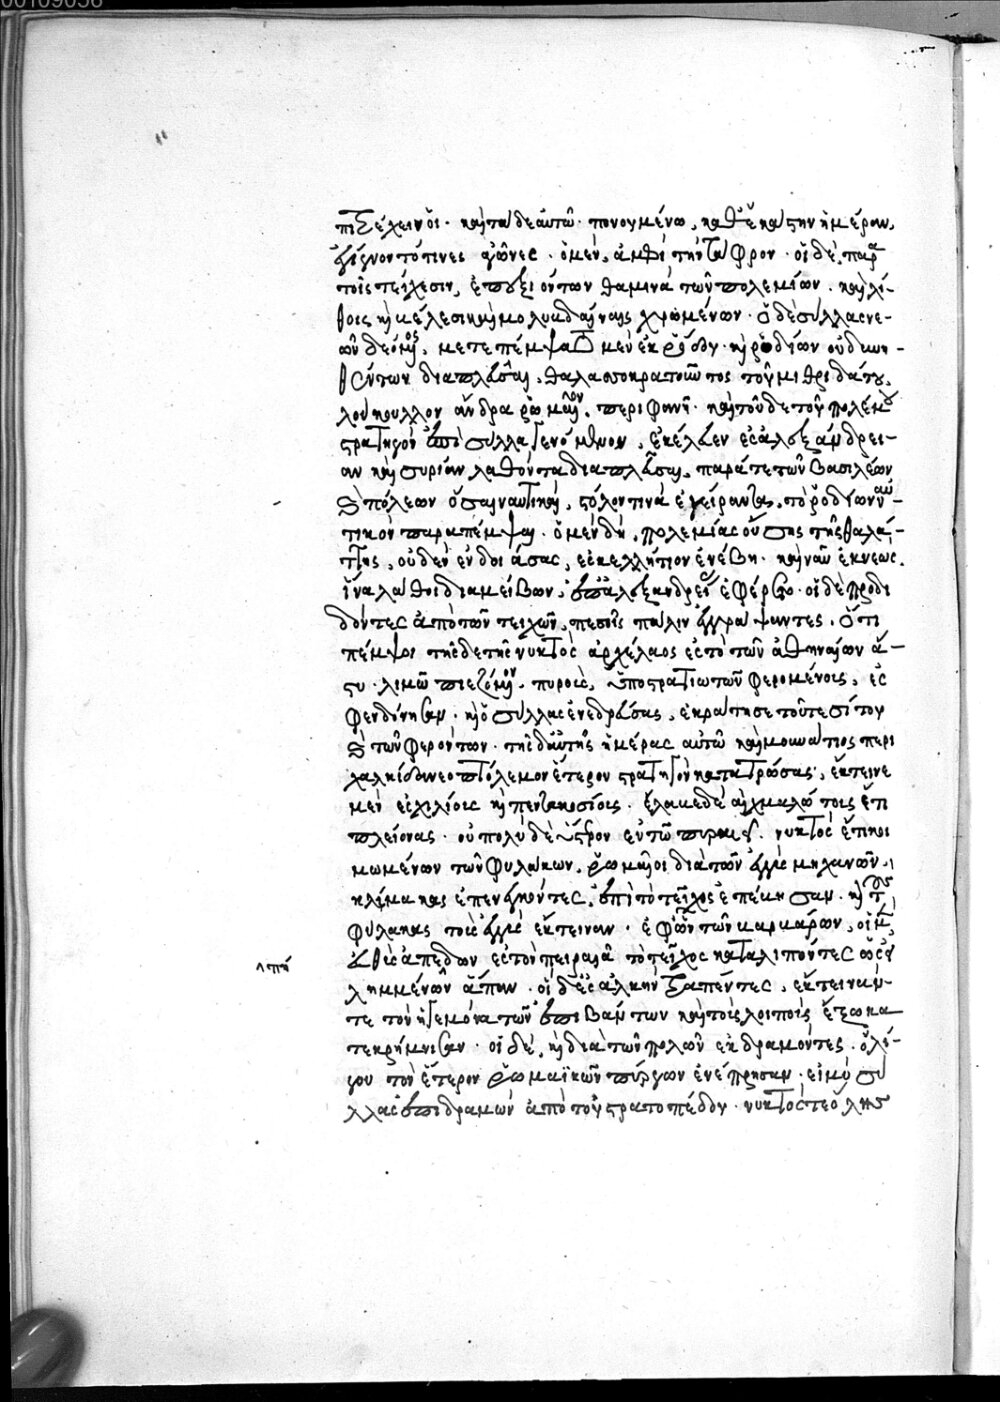 πισθέχειν οἱ. καὶ τάδε αὐτῶ πονουμένω, καθ' ἑκάστην ἡμέραν,
ἐγίγνοντό τινες ἀγῶνες. ὁμὲν, ἀμφὶ τὴν τάφρον. οἱ δὲ, παρὰ
τοῖς τείχεσιν, ἐπεξιόντων θαμινὰ τῶν πολεμίων. καὶ λί-
θοις κὶ βέλεσι καὶ μολυβδαίναις χρωμένων. ὁ δὲ σύλλας νε-
ῶν δεόμενος, μετεπέμψατο μὲν ἐκ ῥόδου. κὶ ῥοδίων οὐ δυνη-
θέντων διαπλεῦσαι, θαλασσοκρατοῦντος τοῦ μιθριδάτου,
λούκουλλον ἄνδρα ῥωμαίων, περιφανῆ. καὶ τοῦδε τοῦ πολέμου
στρατηγὸν ἐπὶ σύλλα γενόμενον, ἐκέλευεν ἐς ἀλεξάνδρει-
αν καὶ συρίαν λαθόντα διαπλεῦσαι, παρά τε τῶν βασιλέων
κὶ πόλεων ὅσαι ναυτικαὶ, στόλον τινὰ ἀγείραντα, τὸ ῥοδίων ναυ-
τικὸν παραπέμψαι. ὁ μὲν δὴ, πολεμίας οὔσης τῆς θαλάτ-
της, οὐδὲν ἐνδοιάσας, ἐς κελλήτιον ἐνέβη. καὶ ναῦν ἐκ νεὼς,
ἵνα λάθοι διαμείβων, ἐπ' ἀλεξανδρείας ἐφέρετο. οἱ δὲ προδι
δόντες ἀπὸ τῶν τειχῶν, πεσσοῖς πάλιν ἐγγράψαντες. ὅτι
πέμψοι τῆσδε τῆς νυκτὸς ἀρχέλαος ἐς τὸ τῶν ἀθηναίων ἄ-
στυ. λιμῶ πιεζόμενον, πυροὺς, ὑπὸ στρατιωτῶν φερομένους, ἐς
φενδόνησαν. κὶ ὁ σύλλας ἐνεδρεύσας, ἐκράτησε τοῦ τε σίτου
κὶ τῶν φερόντων. τῆς δ' αὐτῆς ἡμέρας αὐτῶ καὶ μουνάτιος περὶ
χαλκίδα νεοπτόλεμον ἕτερον στρατηγὸν κατατρώσας, ἔκτεινε
μὲν ἐς χιλίους κὶ πεντακοσίους. ἔλαβε δὲ αἰχμαλώτους ἔτι
πλείονας. οὐ πολὺ δὲ ὕστερον ἐν τῶ πειραιεῖ. νυκτὸς ἔτι κοι
μωμένων τῶν φυλάκων, ῥωμαῖοι διὰ τῶν ἐγγὺς μηχανῶν,
κλίμακας ἐπενεγκόντες, ἐπὶ τὸ τεῖχος ἐπέβησαν. κὶ τοὺς
φύλακας τοὺς ἐγγὺς ἔκτειναν. ἐφ' ὧ τῶν βαρβάρων, οἱ μὲν
εὐθὺς ἀπέδων ἐς τὸν πειραιᾶ τὸ τεῖχος καταλιπόντες ὡς εἰ
λημμένων ἁπάντων. οἱ δ' ἐς ἀλκὴν τραπέντες, ἔκτεινάν-
τε τὸν ἡγεμόνα τῶν ἐπιβάντων καὶ τοὺς λοιποὺς ἔξω κα
τεκρήμνισαν. οἱ δὲ, κὶ διὰ τῶν πυλῶν ἐκδραμόντες. ὀλί-
γου τὸν ἕτερον ῥωμαϊκῶν πύργων ἐνέπρησαν. εἰ μὴ σύ
λλας ἐπιδραμὼν ἀπὸ τοῦ στρατοπέδου. νυκτός τε ὅλης